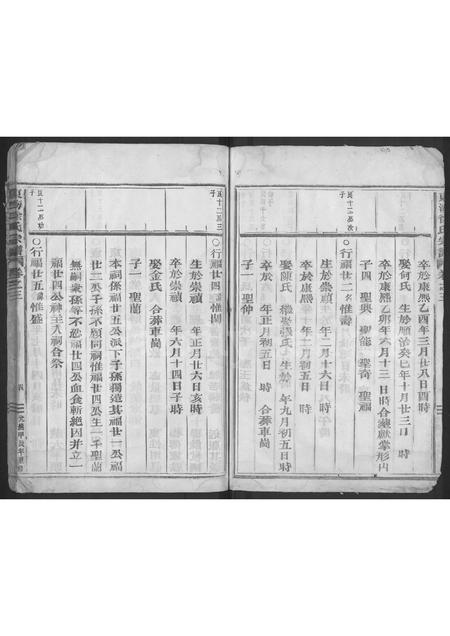 卒於康熙乙酉年三月廿八日酉時
娶何氏 生於順治癸巳年十月廿三日 時
卒於康熙乙卯年六月十三日時合葬獻掌形內
子四 聖興 聖能 聖奇 聖福
○行福廿二 惟壽
生於崇禎 年二月十六日 時
卒於康熙 年二月初五日 時
娶陳氏 繼娶張氏 生於 年九月初五日時
卒於 年正月初五日 時 合葬車崗
子一 聖仲
○行福廿四 惟閏
生於崇禎 年正月廿六日亥時
卒於崇禎 年六月十四日子時
娶金氏 合葬車崗
子一 聖蘭
本祠孫福廿五公派下子孫獨這其福廿一公福
廿二公子孫不願同祠惟福廿四公生一子聖蘭
無嗣衆孫等不忍福廿四公血食斬絕因并立一
福廿四公神主入祠合祭
○行福廿五 惟盛